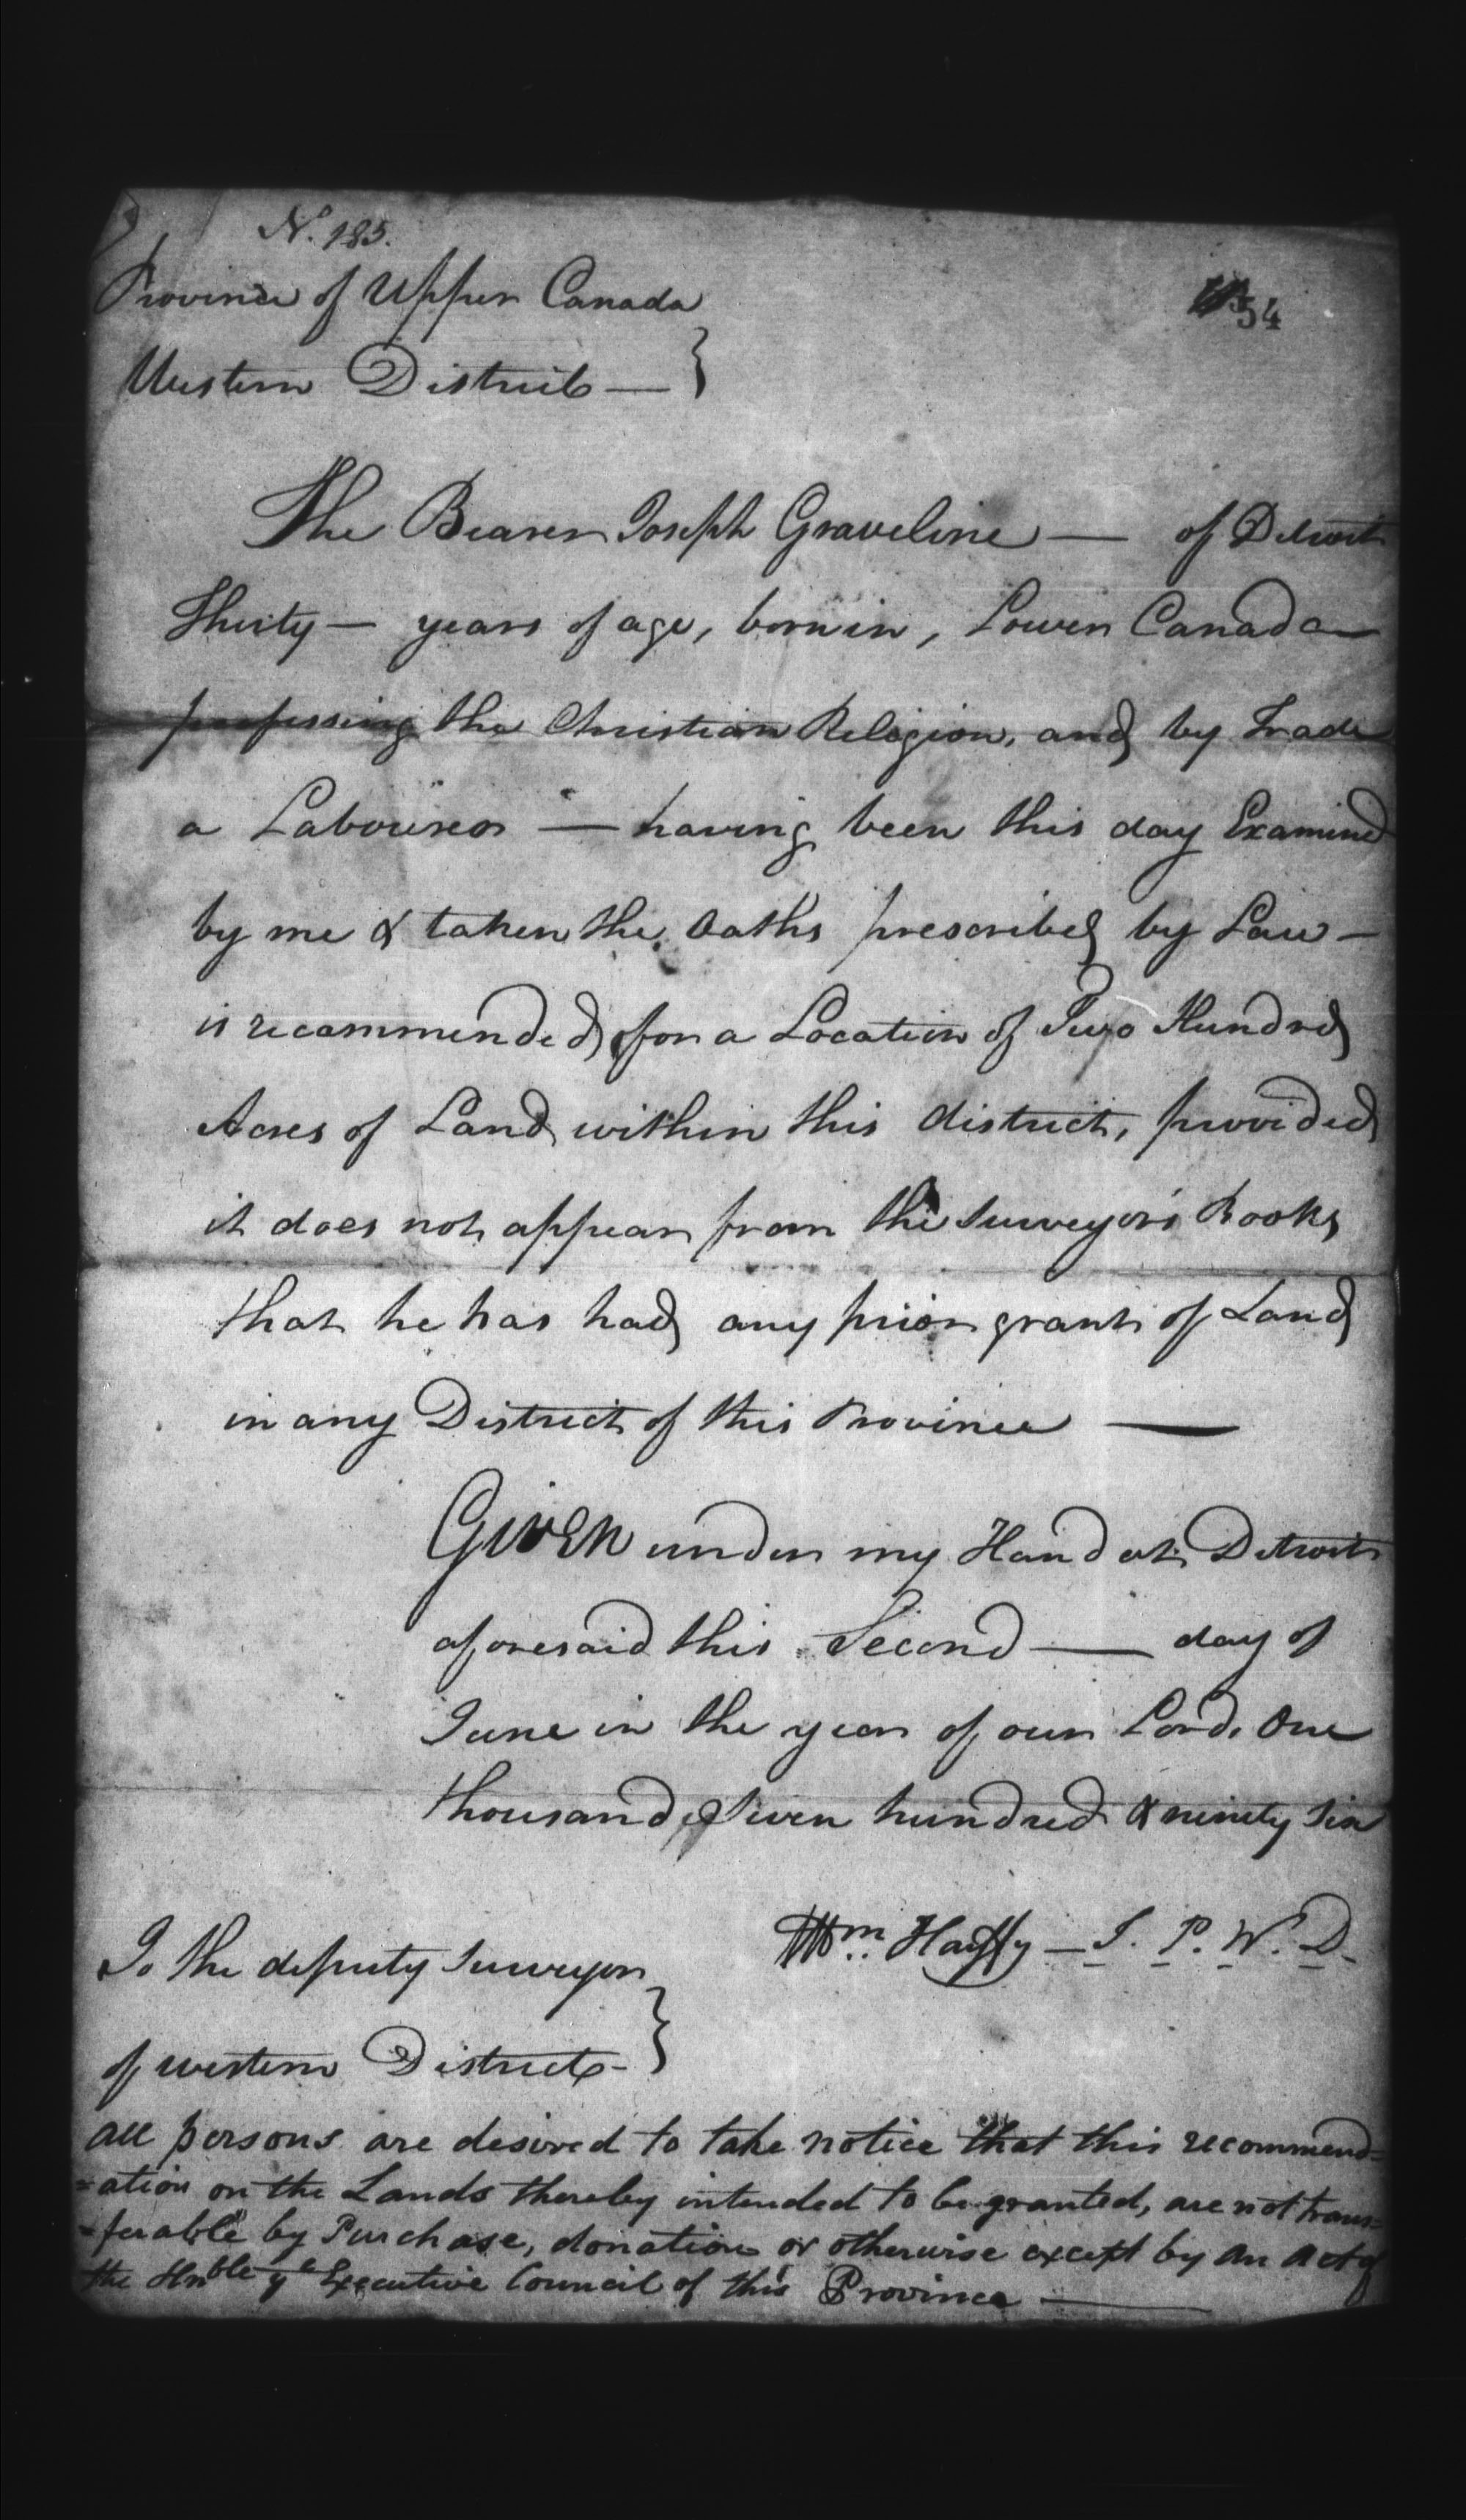 No. 185.
54
Province of Upper Canada
Western District — }
The Bearer Joseph Graveline — of Detroit
Thirty — years of age, born in, Lower Canada
professing the Christian Religion, and by Trade
a Labourer — having been this day Examined
by me & taken the Oaths prescribed by Law —
is recommended for a Location of Two Hundred
Acres of Land within this district, provided
it does not appear from the Surveyors Books
that he has had any prior grant of Land
in any District of this Province —
Given under my Hand at Detroit
aforesaid this Second — day of
June in the year of our Lord, One
thousand Seven hundred & ninety six
Wm. Harffy — J. P. W. D.
To the deputy Surveyor
of western District - }
all persons are desired to take notice that this recommend=
=ation or the Lands thereby intended to be granted, are not trans=
=ferable by Purchase, donation or otherwise except by an act of
the Honble ye Executive Council of this Province —